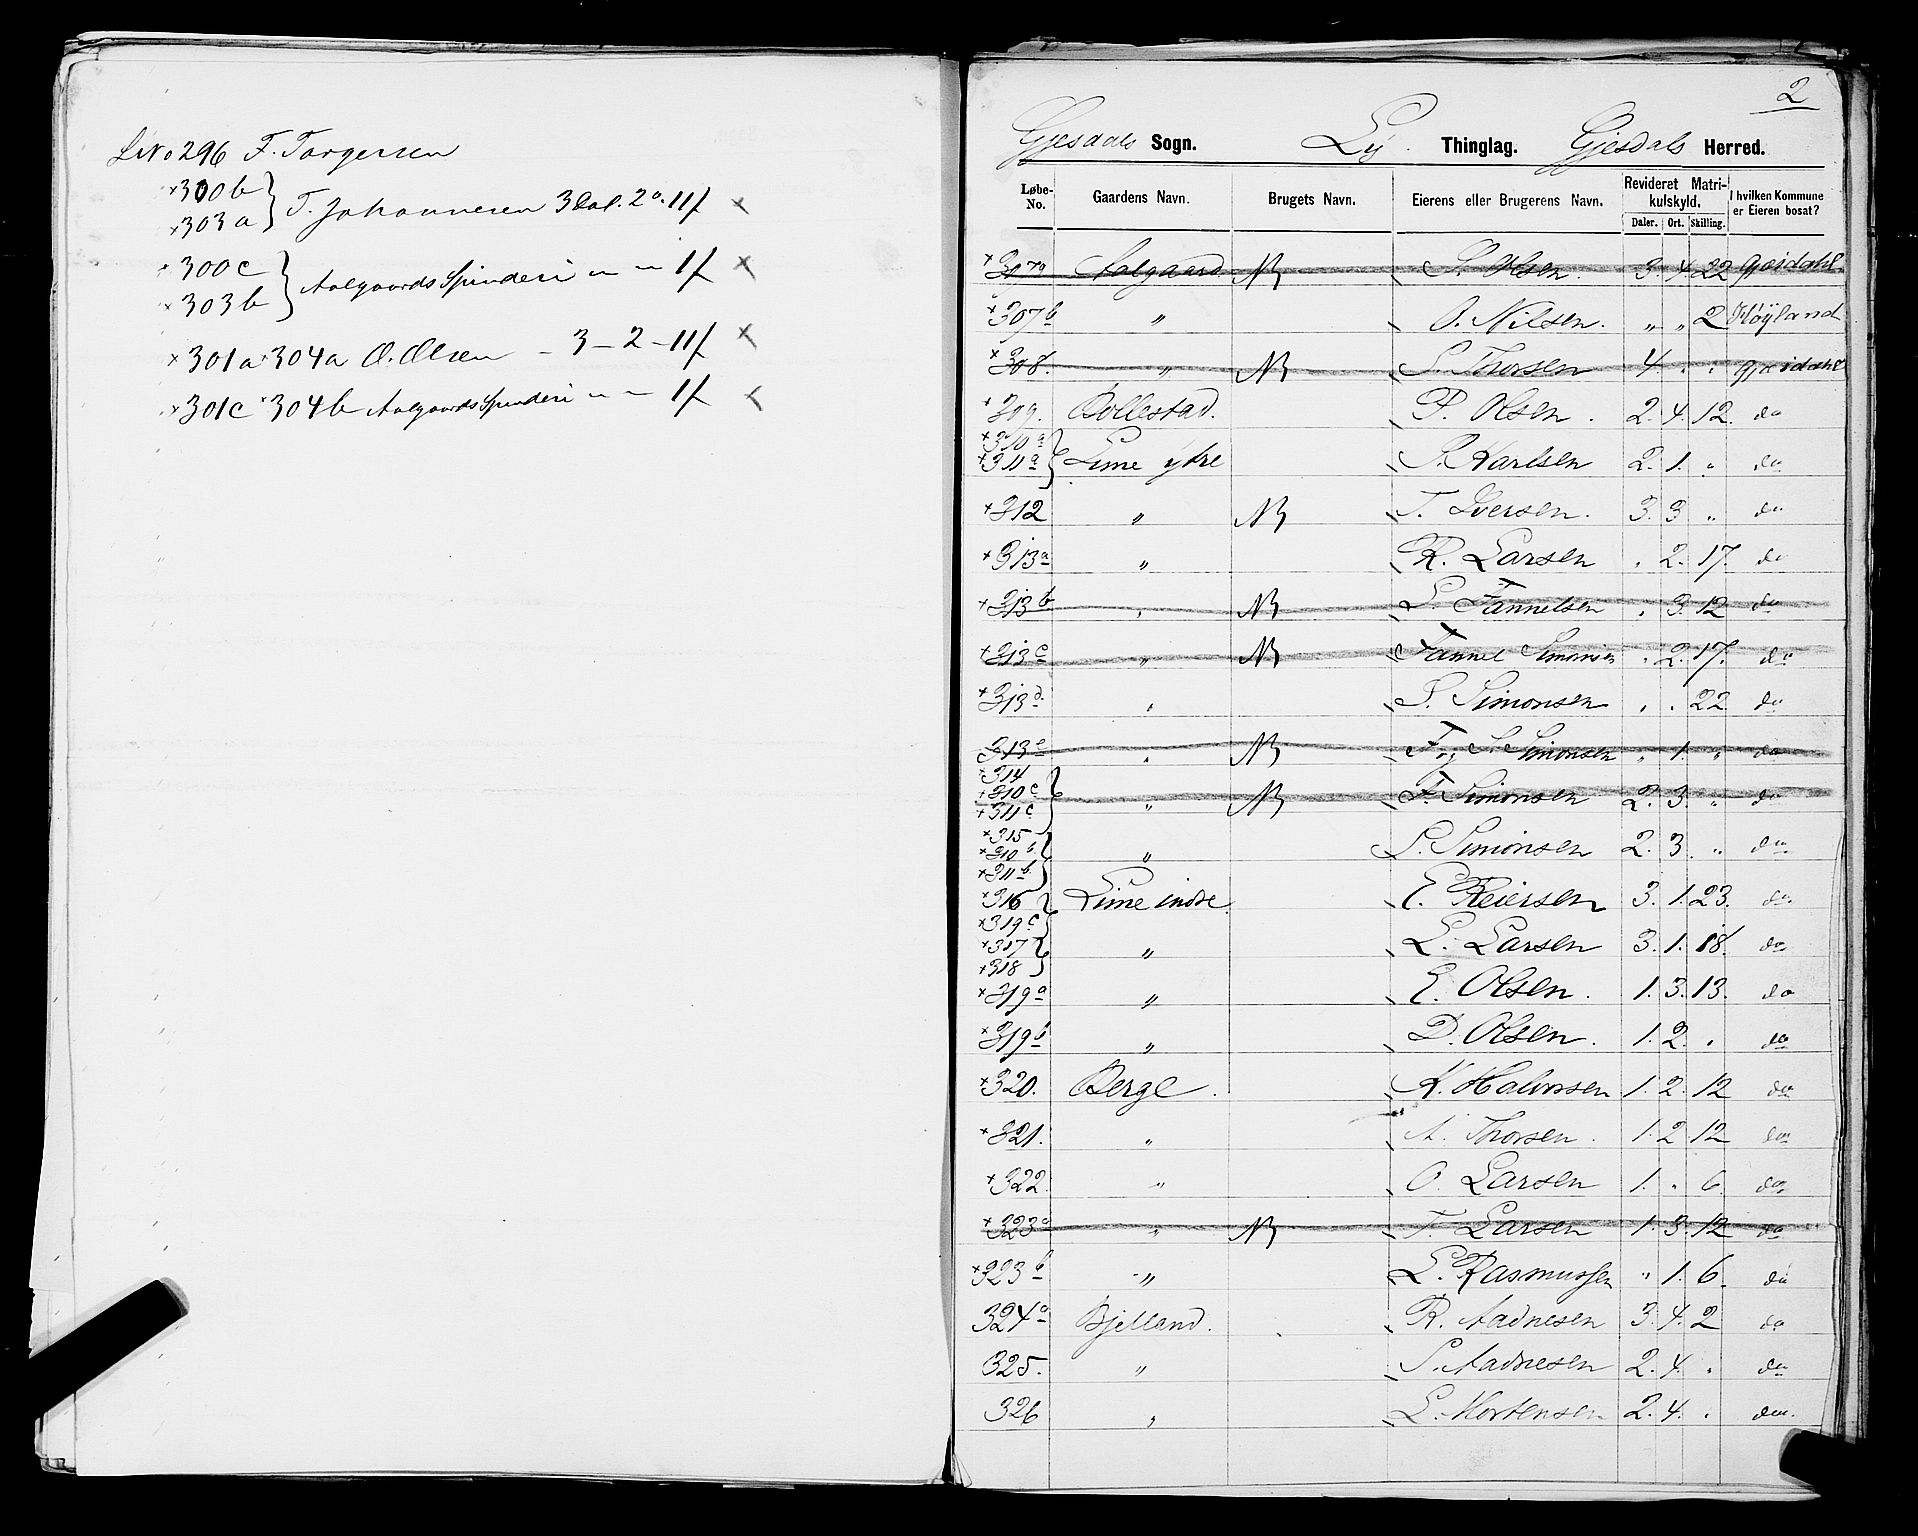 LNo 296 F. Torgersen
×300b
×303a } T. Johannesen 3 Dal. 2 o. 11 ſ ×
×300c
×303b } Aalgaards Spinderi " – " – 1 ſ ×
×301a ×304a O. Olsen – 3 – 2 – 11 ſ ×
×301c ×304b Aalgaards Spinderi " – " – 1 ſ ×
2
Gjesdals Sogn. Lÿ Thinglag. Gjesdals Herred.
Løbe-No. Gaardens Navn. Brugets Navn. Eierens eller Brugerens Navn. Revideret Matrikulskyld. I hvilken Kommune er Eieren bosat?
Daler. Ort. Skilling.
×307a Aalgaard NB S. Olsen. 3. 4. 22 Gjesdahl
×307b " O. Nilsen. " " 2 Høÿland
×308. " NB S. Thorsen 4 . . Gjesdahl
×309. Bollestad. P. Olsen. 2. 4. 12. do
×310a
×311a } Lime ytre P. Karlsen 2. 1. " do
×312 " NB T. Iversen. 3. 3 " do
×313a " R. Larsen . 2. 17. do
×313b " NB S. Tannelsen . 3. 12 do
×313c " NB Tannel Simonsen . 2. 17. do
×313d " S. Simonsen . . 22 do
313e " NB T. og S. Simonsen " 1. " do
×314
×310c
×311c } " NB T. Simonsen 2. 3. " do
×315
×310b
×311b } " S. Simonsen 2. 3. " do
×316
×319c } Lime indre E. Reiersen 3. 1. 23. do
×317
×318 } " L. Larsen 3. 1. 18. do
×319a " E. Olsen. 1. 3. 13. do
×319b " D. Olsen. 1. 2. . do
×320. Berge. K. Halvorsen 1. 2. 12 do
×321. " A. Thorsen. 1. 2 12 do
×322. " O. Larsen 1. " 6. do
×323a " NB T. Larsen 1. 3. 12 do
×323b " L. Rasmussen " 1. 6. do
324a Bjelland. R. Aadnesen 3. 4. 2 do
325. " S. Aadnesen 2. 4. " do
326 " L. Mortensen 2. 4. " do.